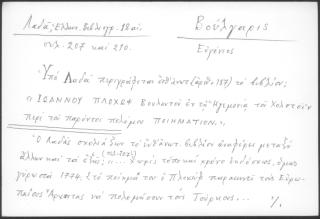 Λαδᾶ; Ἑλλην. Βιβλιογρ. 18 αἰ.
σελ. 207 καὶ 210.
Βούλγαρις
Εὐγένιος
Ὑπὸ Λαδᾶ περιγράφεται (ἀριθ. 157) τὸ βιβλίον;
"ΙΩΑΝΝΟΥ ΠΛΟΚΩΦ Βουλευτοῦ ἐν τῇ Ἡγεμονίᾳ τοῦ Χολστεῒν
περὶ τοῦ παρόντος πολέμου ΠΟΙΗΜΑΤΙΟΝ.",
Ὁ Λαδᾶς τὸ βιβλίον ἀναφέρει μεταξὺ
ἄλλων καὶ τὰ ἑξῆς; Χωρὶς τόπο καὶ χρόνο ἐκδόσεως, ὅμως
γύρω στὰ 1774. Στὸ ποίημά του ὁ Πλοκὼφ παρακινεῖ τοὺς Εὐρω-
παίους Ἄρχοντας νὰ πολεμήσουν τοὺς Τούρκους...